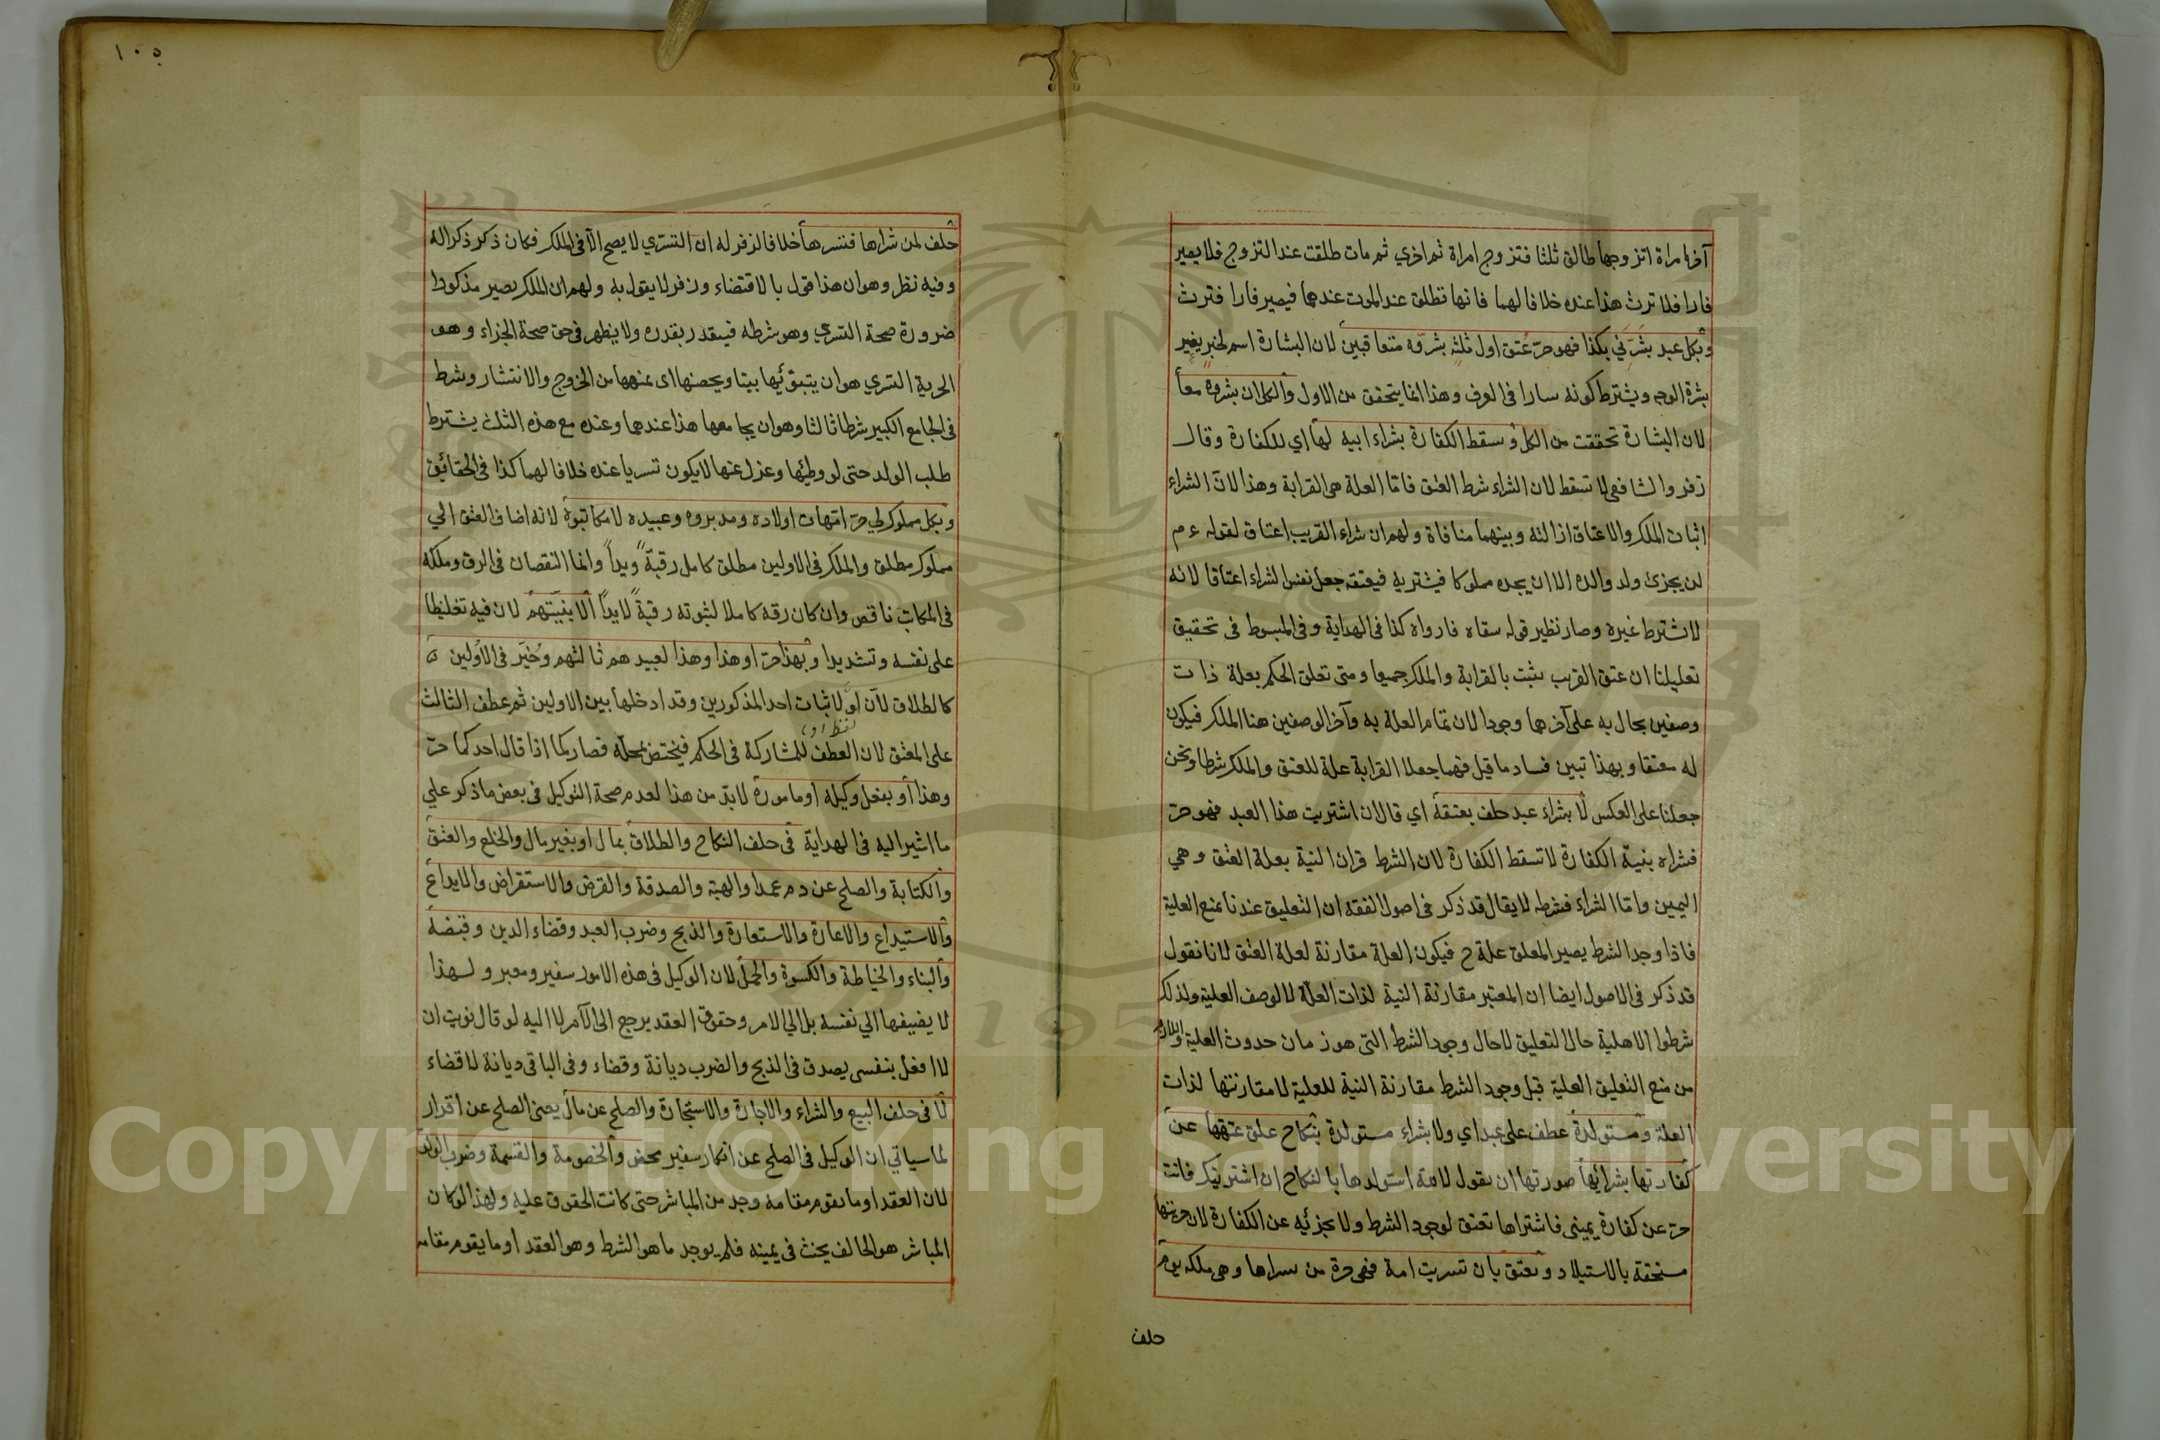 آخر امراة اتزوجها طالق ثلثا فتزوج امراة ثم اخري ثم مات طلقت عند التزوج فلا يصير
فارا فلا ترث هذا عنده خلافا لهما فانها تطلق عند الموت عندهما فيصير فارا فترث
وبكل عبد بشرني بكذا فهو حر عتق اول ثلثه بشروه متعاقبين لان البشارة اسم لخبر يغير
بشرة الوجه ويشترط كونه سارا في العرف وهذا انما يتحقق من الاول والكل ان بشروه معا
لان البشارة تحققت من الكل وسقط الكفارة بشراء ابيه لها اي للكفارة وقال
زفر والشافعي لا تسقط لان الشراء شرط العتق فاما العلة هي القرابة وهذا لان الشراء
اثبات الملك والاعتاق ازالته وبينهما منافاة ولهم ان شراء القريب اعتاق لقوله ءم
لن يجزئ ولد والده الا ان يجده مملوكا فيشتريه فيعتقه جعل نفس الشراء اعتاقا لانه
لا شترط غيره وصار نظير قوله سقاه فارواه كذا في الهداية وفي المبسوط في تحقيق
تعليلنا ان عتق القريب يثبت بالقرابة والملك جميعا ومتى تعلق الحكم بعلة ذات
وصفين يحال به على آخرهما وجودا لان تمام العلة به وآخر الوصفين هنا الملك فيكون
له معتقا وبهذا تبين فساد ما قيل فهما جعلا القرابة علة للعتق والملك شرطا ونحن
جعلنا على العكس لا بشراء عبد حلف بعتقه اي قال ان اشتريت هذا العبد فهو حر
فشراه بنية الكفارة لا تسقط الكفارة لان الشرط قران النية بعلة العتق وهي
اليمين واما الشراء فشرطه لا يقال قد ذكر في اصول الفقه ان التعليق عندنا يمنع العلية
فاذا وجد الشرط يصير المعلق علة ح فيكون العلة مقارنة لعلة العتق لانا نقول
قد ذكر في الاصول ايضا ان المعتبر مقارنة النية لذات العلة لا لوصف العلية ولذلك
شرطوا الاهلية حال التعليق لا حال وجود الشرط التي هو زمان حدوث العلية واللازم
من منع التعليق العلية قبل وجود الشرط مقارنة النية للعلية لا مقارنتها لذات
العلة ومستولدة عطف على عبد اي ولا بشراء مستولدة بنكاح علق عتقها عن
كفارتها بشرائها صورتها ان يقول لامة استولدها بالنكاح ان اشتريتك فانت
حر عن كفارة يميني فاشتراها تعتق لوجود الشرط ولا يجزئه عن الكفارة لان حريتها
مستحقة بالاستيلاد وتعتق بان تسريت امة فهي حرة من تسراها وهي ملكه يوم
حلف
١٠٥
حلف لمن شراها فتسراها خلافا لزفر له ان التسري لا يصح الا في الملك فكان ذكره ذكرا له
وفيه نظر وهو ان هذا قول بالاقتضاء وزفر لا يقول به ولهم ان الملك يصير مذكورا
ضرورة صحة التسري وهو شرطه فيتقدر بقدره ولا يظهر في حق صحة الجزاء وهو
الحرية التسري هو ان يتبوئها بيتا ويحصنها اي يمنعها من الخروج والانتشار وشرط
في الجامع الكبير شرطا ثالثا وهو ان يجامعها هذا عندهما وعنده مع هذه الثلث يشترط
طلب الولد حتى لو وطئها وعزل عنها لا يكون تسريا عنده خلافا لهما كذا في الحقائق
وبكل مملوك لي حر امهات اولاده ومدبروه وعبيده لا مكاتبوه لانه اضاف العتق الي
مملوك مطلق والملك في الاولين مطلق كامل رقبة ويدا وانما النقصان في الرق وملكه
في المكاتب ناقص وان كان رقه كاملا لثبوته رقبة لا يدا الا بنيتهم لان فيه تغليظا
على نفسه وتشديدا وبهذا حر او هذا وهذا لعبيد هم ثالثهم وخير في الاولين
كالطلاق لان او لاثبات احد المذكورين وقد ادخلها بين الاولين ثم عطف الثالث
على المعتق لان العطف للمشاركة في الحكم فيختص بمحله فصار كما اذا قال احدكما حر
وهذا او بفعل وكيله او مامورة لا بد من هذا لعدم صحة التوكيل في بعض ما ذكر علي
ما اشير اليه في الهداية في حلف النكاح والطلاق بمال او بغير مال والخلع والعتق
والكتابة والصلح عن دم عمد والهبة والصدقة والقرض والاستقراض والايداع
والاستيداع والاعارة والاستعارة والذبح وضرب العبد وقضاء الدين وقبضه
والبناء والخياطة والكسوة والحمل لان الوكيل في هذه الامور سفير ومعبر ولهذا
لا يضيفها الي نفسه بل الي الامر وحقوق العقد يرجع الى الآمر لا اليه لو قال نويت ان
لا افعل بنفسي يصدق في الذبح والضرب ديانة وقضاء وفي الباقي ديانة لا قضاء
لا في حلف البيع والشراء والاجارة والاستجارة والصلح عن مال يعني الصلح عن اقرار
لما سياتي ان الوكيل في الصلح عن انكار سفير محض والخصومة والقسمة وضرب الولد
لان العقد او ما يقوم مقامه وجد من المباشر حتى كانت الحقوق عليه ولهذا لو كان
المباشر هو الحالف يحنث في يمينه فلم يوجد ما هو الشرط وهو العقد او ما يقوم مقامه
Copyright © King Saud University